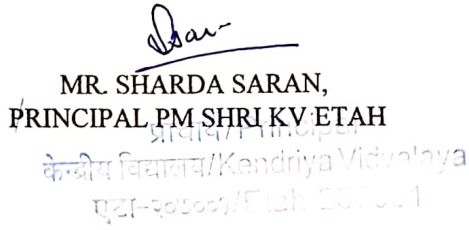 MR. SHARDA SARAN,
PRINCIPAL PM SHRI KV ETAH
प्राचार्य/Principal
केन्द्रीय विद्यालय/Kendriya Vidyalaya
एटा-२०७००१/Etah 207001